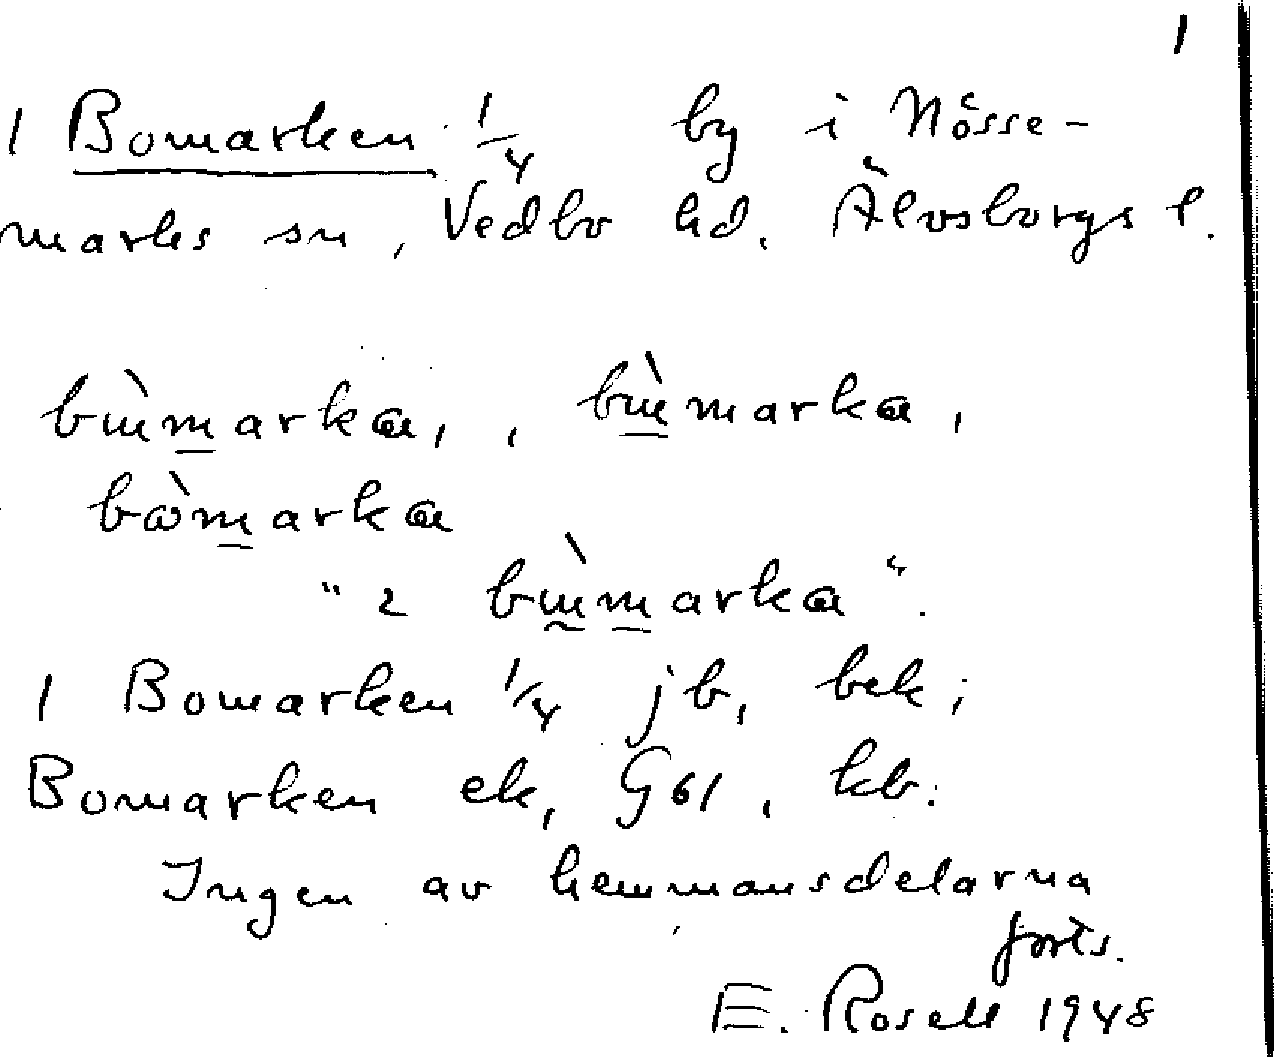 1
1 Bomarken 1/4 by i Nösse-
marks sn, Vedbo hd. Älvsborgs l.
bɯ̀marka, , bɯ̀marka,
bɷ̀marka
" 2 bɯ̀marka ".
1 Bomarken 1/4 jb, bek;
Bomarken ek, G61, kb.
Ingen av hemmansdelarna
forts.
E. Rosell 1948